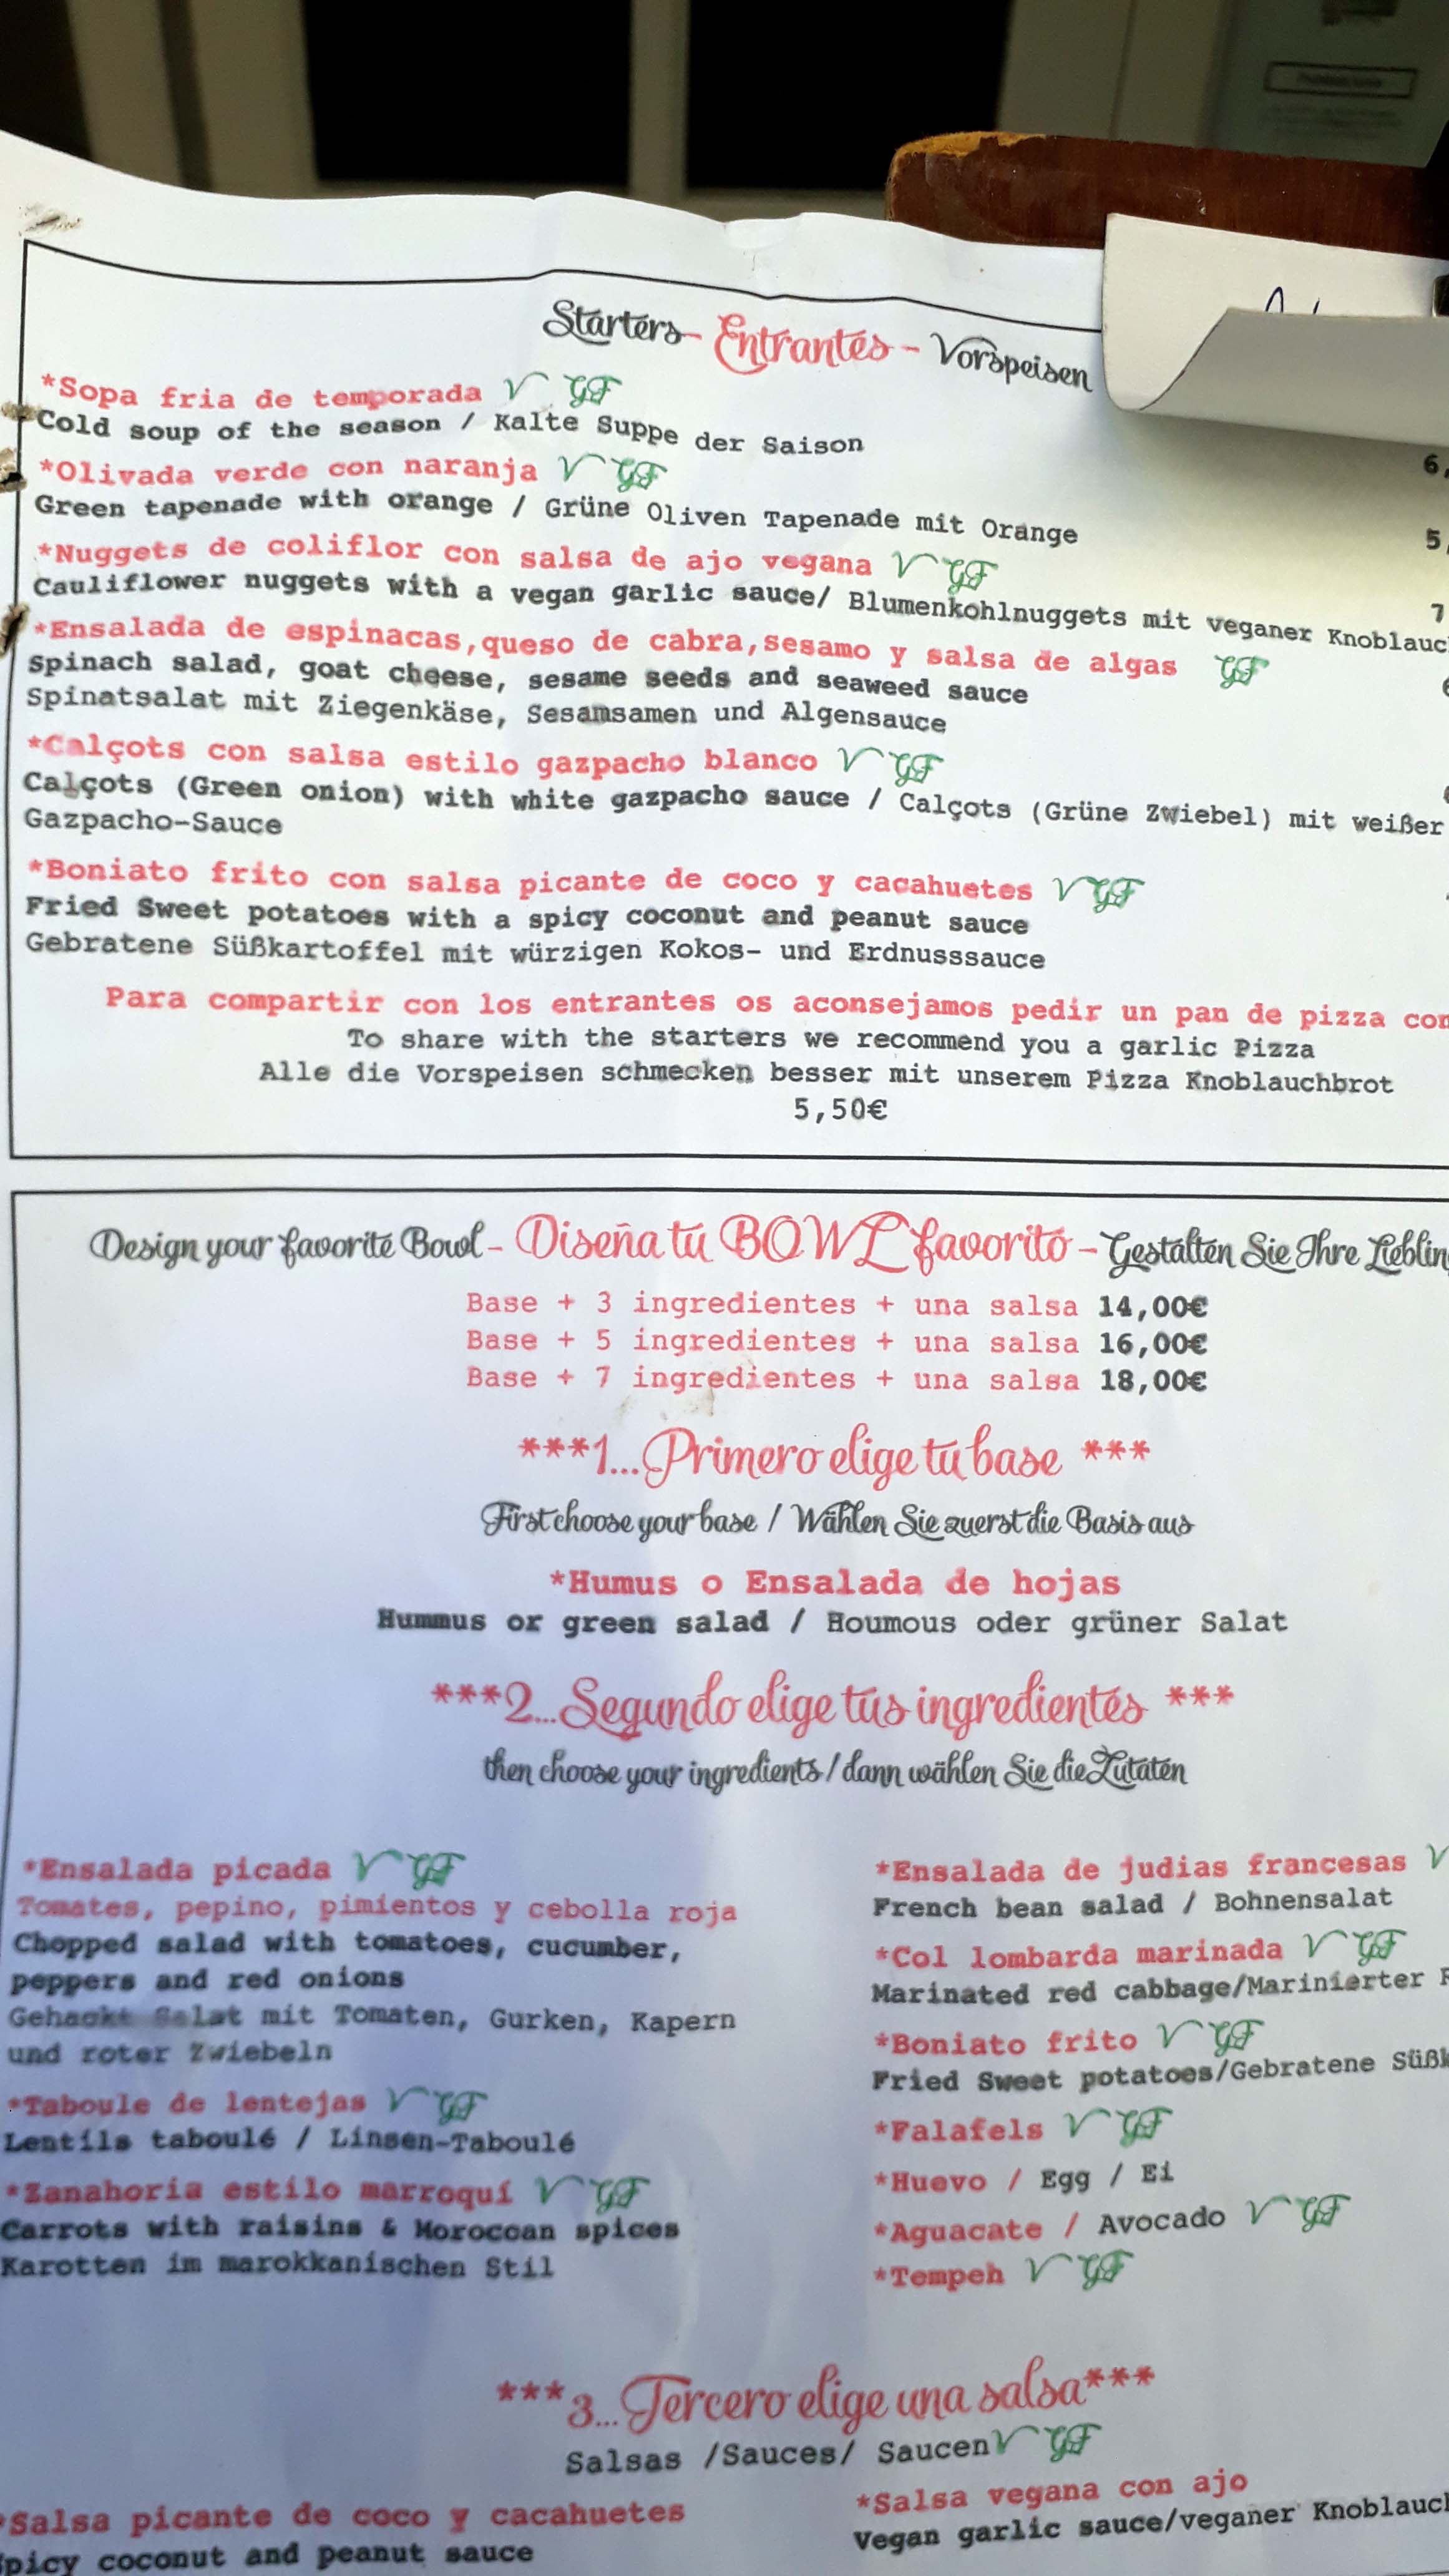 Starters- Entrantes - Vorspeisen
*Sopa fria de temporada V GF
Cold soup of the season / Kalte Suppe der Saison
6,
*Olivada verde con naranja V GF
Green tapenade with orange / Grüne Oliven Tapenade mit Orange
5,
*Nuggets de coliflor con salsa de ajo vegana V GF
Cauliflower nuggets with a vegan garlic sauce/ Blumenkohlnuggets mit veganer Knoblauc
7
*Ensalada de espinacas,queso de cabra,sesamo y salsa de algas GF
Spinach salad, goat cheese, sesame seeds and seaweed sauce
Spinatsalat mit Ziegenkäse, Sesamsamen und Algensauce
*Calçots con salsa estilo gazpacho blanco V GF
Calçots (Green onion) with white gazpacho sauce / Calçots (Grüne Zwiebel) mit weißer
Gazpacho-Sauce
*Boniato frito con salsa picante de coco y cacahuetes V GF
Fried Sweet potatoes with a spicy coconut and peanut sauce
Gebratene Süßkartoffel mit würzigen Kokos- und Erdnusssauce
Para compartir con los entrantes os aconsejamos pedir un pan de pizza con
To share with the starters we recommend you a garlic Pizza
Alle die Vorspeisen schmecken besser mit unserem Pizza Knoblauchbrot
5,50€
Design your favorite Bowl - Diseña tu BOWL favorito - Gestalten Sie Ihre Lieblin
Base + 3 ingredientes + una salsa 14,00€
Base + 5 ingredientes + una salsa 16,00€
Base + 7 ingredientes + una salsa 18,00€
***1...Primero elige tu base ***
First choose your base / Wählen Sie zuerst die Basis aus
*Humus o Ensalada de hojas
Hummus or green salad / Houmous oder grüner Salat
***2...Segundo elige tus ingredientes ***
then choose your ingredients / dann wählen Sie die Zutaten
*Ensalada picada V GF
Tomates, pepino, pimientos y cebolla roja
Chopped salad with tomatoes, cucumber,
peppers and red onions
Gehackt Salat mit Tomaten, Gurken, Kapern
und roter Zwiebeln
*Taboule de lentejas V GF
Lentils taboulé / Linsen-Taboulé
*Zanahoria estilo marroquí V GF
Carrots with raisins & Moroccan spices
Karotten im marokkanischen Stil
*Ensalada de judias francesas V
French bean salad / Bohnensalat
*Col lombarda marinada V GF
Marinated red cabbage/Marinierter R
*Boniato frito V GF
Fried Sweet potatoes/Gebratene Süßk
*Falafels V GF
*Huevo / Egg / Ei
*Aguacate / Avocado V GF
*Tempeh V GF
***3...Tercero elige una salsa***
Salsas /Sauces/ Saucen V GF
*Salsa picante de coco y cacahuetes
picy coconut and peanut sauce
*Salsa vegana con ajo
Vegan garlic sauce/veganer Knoblauch